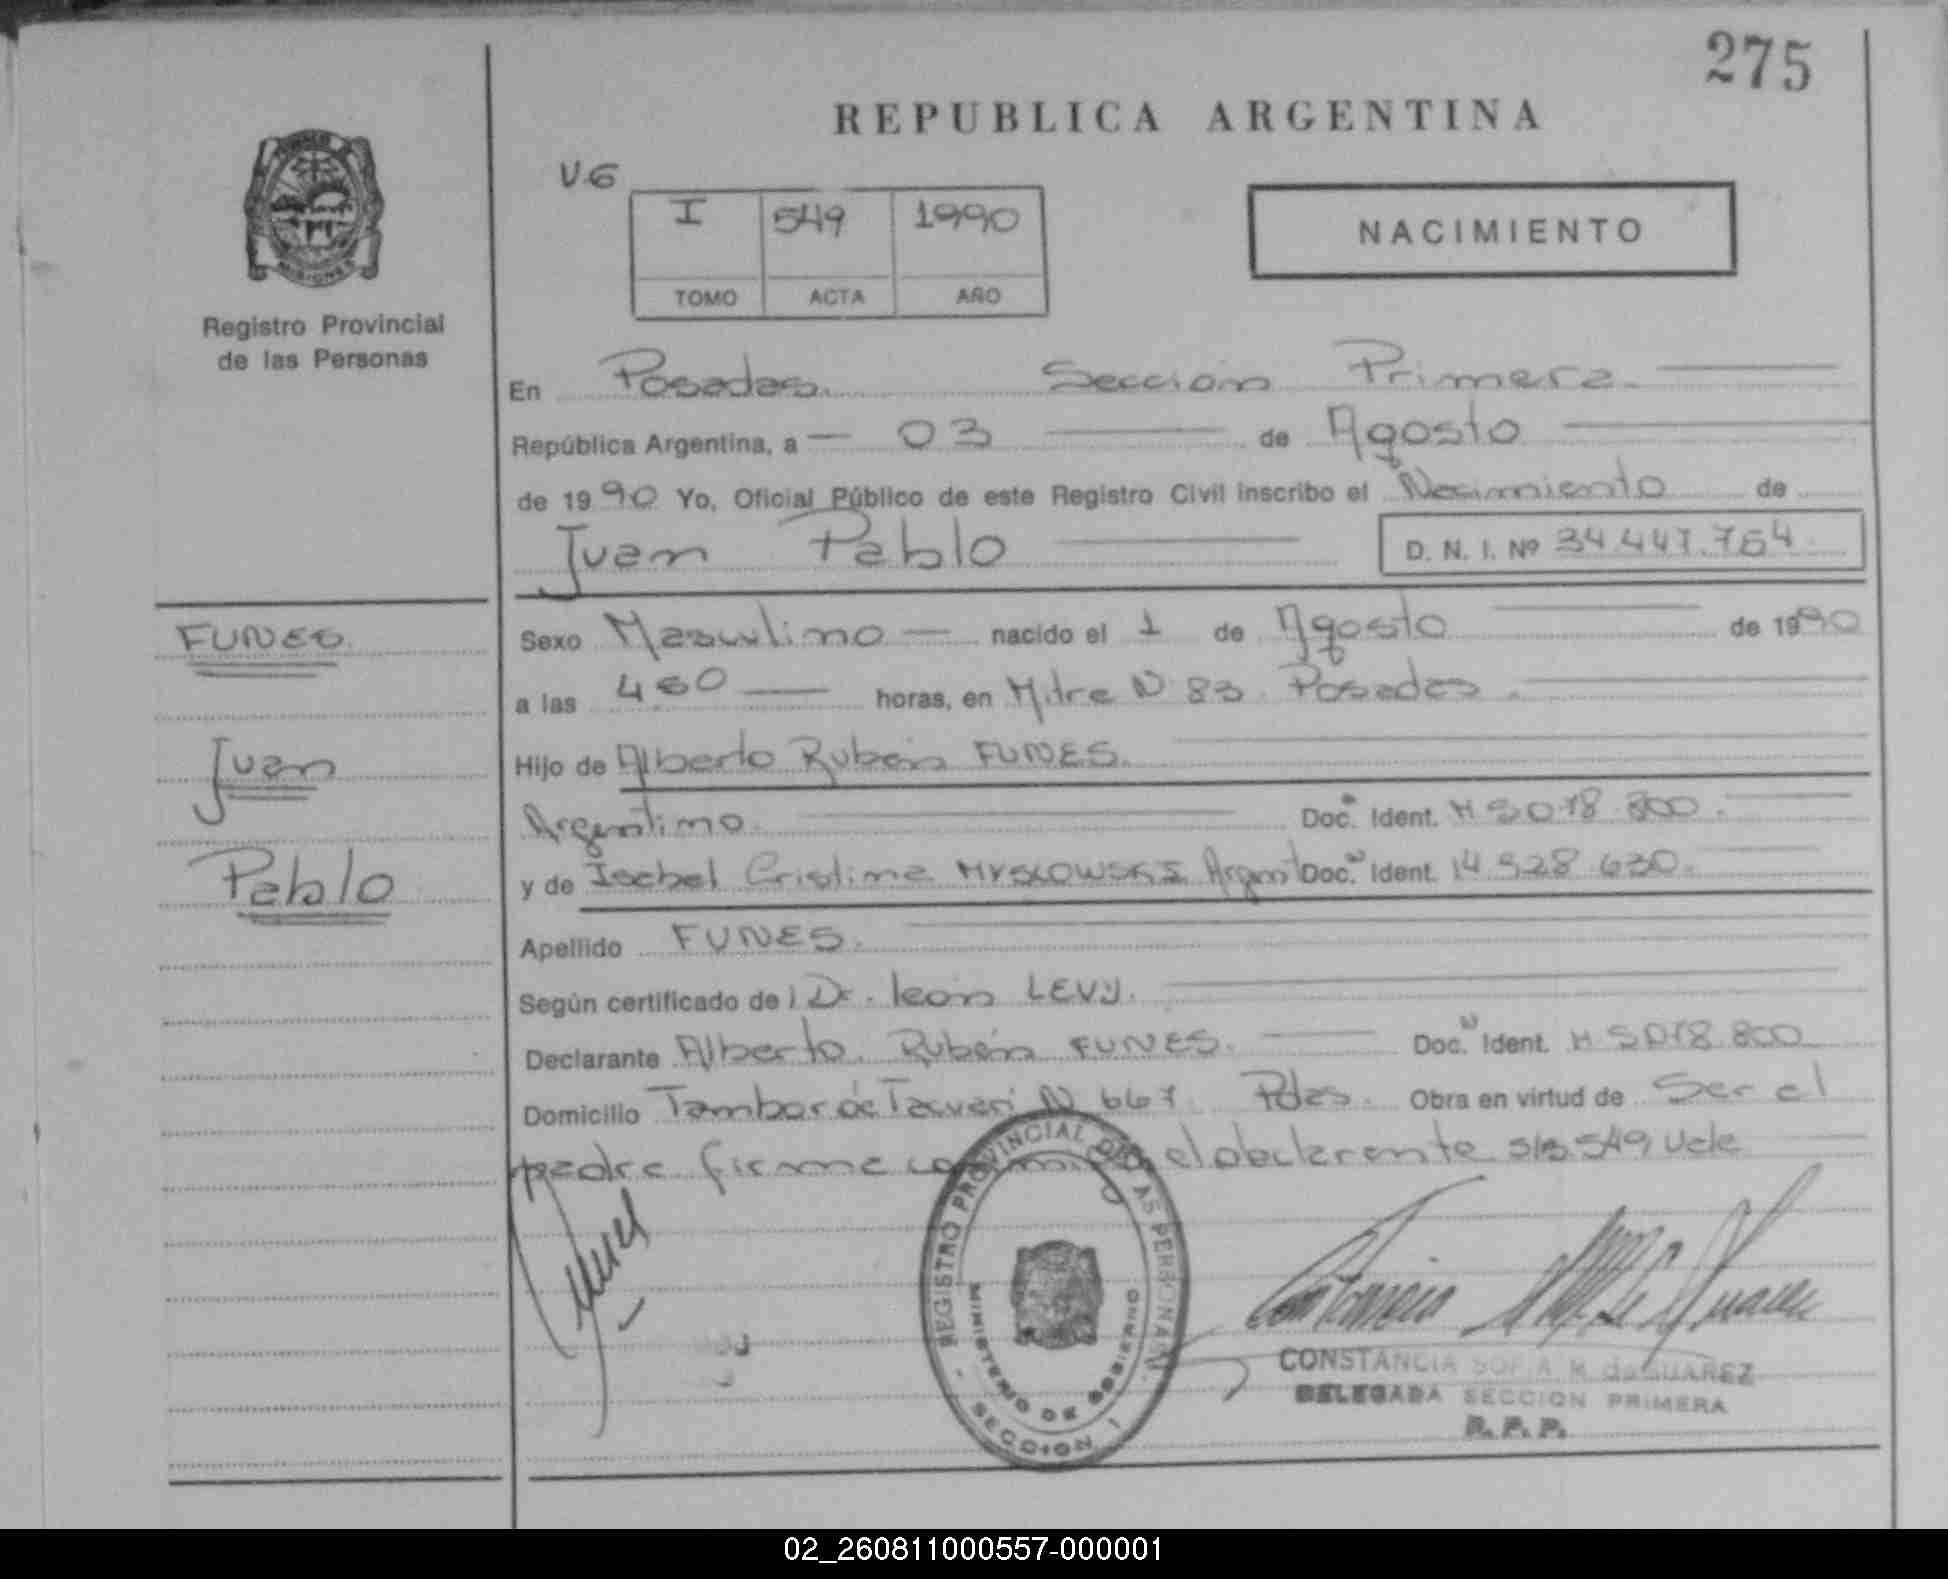 275
REPUBLICA ARGENTINA
V6
I 549 1990
TOMO ACTA AÑO
NACIMIENTO
MISIONES
Registro Provincial
de las Personas
En Posadas. Sección Primera.
República Argentina, a 03 de Agosto
de 1990 Yo, Oficial Público de este Registro Civil inscribo el Nacimiento de
Juan Pablo D. N. I. Nº 34.447.764
FUNES.
Juan
Pablo
Sexo Masculino nacido el 1 de Agosto de 1990
a las horas, en Mitre N 83. Posadas.
Hijo de Alberto Rubén FUNES.
Argentino. Doc. Ident. M 5.078.800.
y de Isabel Cristina MYSKOWSKI Argent Doc. Ident. 14.528.630.
Apellido FUNES.
Según certificado de Dr. León LEVY.
Declarante Alberto Rubén FUNES. Doc. Ident. M 5.078.800
Domicilio Tambor de Tacuarí N 667. Pdas. Obra en virtud de Ser el
padre firma conmigo el declarante S/B 549 Vale
REGISTRO PROVINCIAL DE LAS PERSONAS
MINISTERIO DE GOBIERNO
- SECCION 1 -
CONSTANCIA SOFIA M. de SUAREZ
DELEGADA SECCION PRIMERA
R. P. P.
02_260811000557-000001